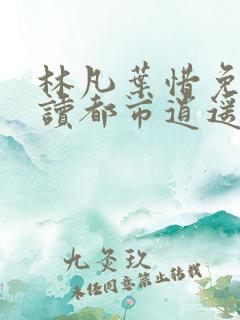 林凡葉惜免
讀都市逍遥
九灸玖
未经同意禁止转载